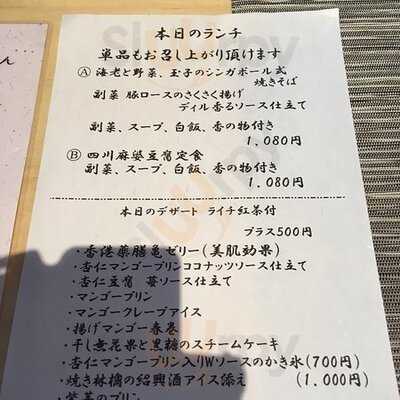 本日のランチ
単品もお召し上がり頂けます
Ⓐ 海老と野菜、玉子のシンガポール式
焼きそば
副菜 豚ロースのさくさく揚げ
ディル香るソース仕立て
副菜、スープ、白飯、香の物付き
1,080円
Ⓑ 四川麻婆豆腐定食
副菜、スープ、白飯、香の物付き
1,080円
本日のデザート ライチ紅茶付
プラス500円
・香港薬膳亀ゼリー(美肌効果)
・杏仁マンゴープリンココナッツソース仕立て
・杏仁豆腐 苺ソース仕立て
・マンゴープリン
・マンゴークレープアイス
・揚げマンゴー春巻
・干し無花果と黒糖のスチームケーキ
・杏仁マンゴープリン入りWソースのかき氷(700円)
・焼き林檎の紹興酒アイス添え (1,000円)